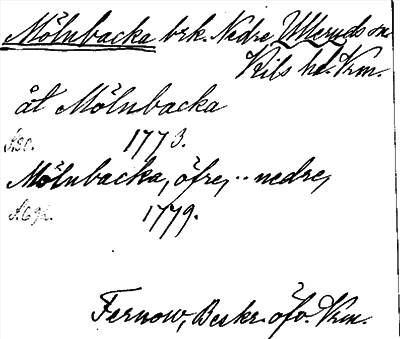 Mölnbacka brk. Nedre Ulleruds sn
Kils hd. Vrm.
åt Mölnbacka
1773.
Mölnbacka, öfre, - nedre,
1779.
Fernow, Beskr. öfv. Vrm.